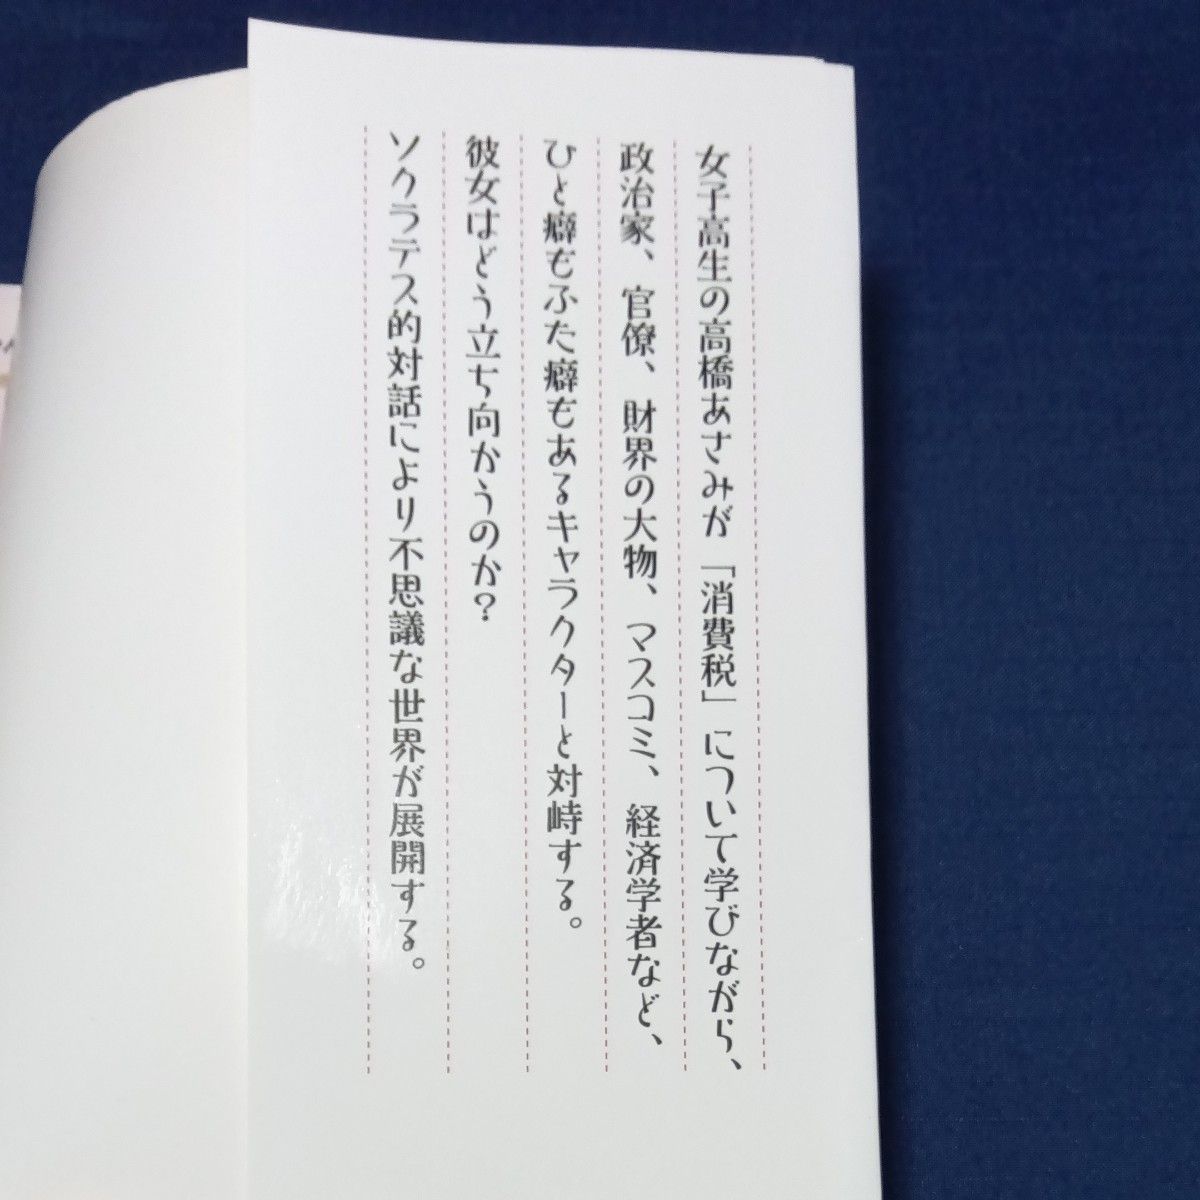 女子高生の高橋あさみが「消費税」について学びながら、
政治家、官僚、財界の大物、マスコミ、経済学者など、
ひと癖もふた癖もあるキャラクターと対峙する。
彼女はどう立ち向かうのか?
ソクラテス的対話により不思議な世界が展開する。